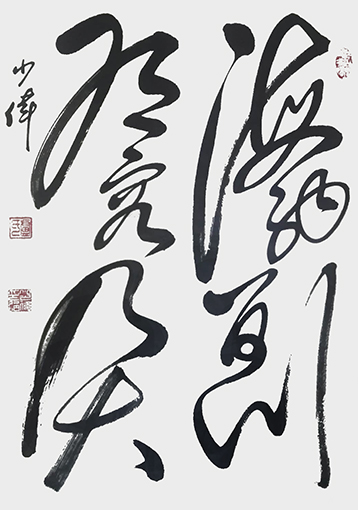 海納百川
有容乃大
少偉